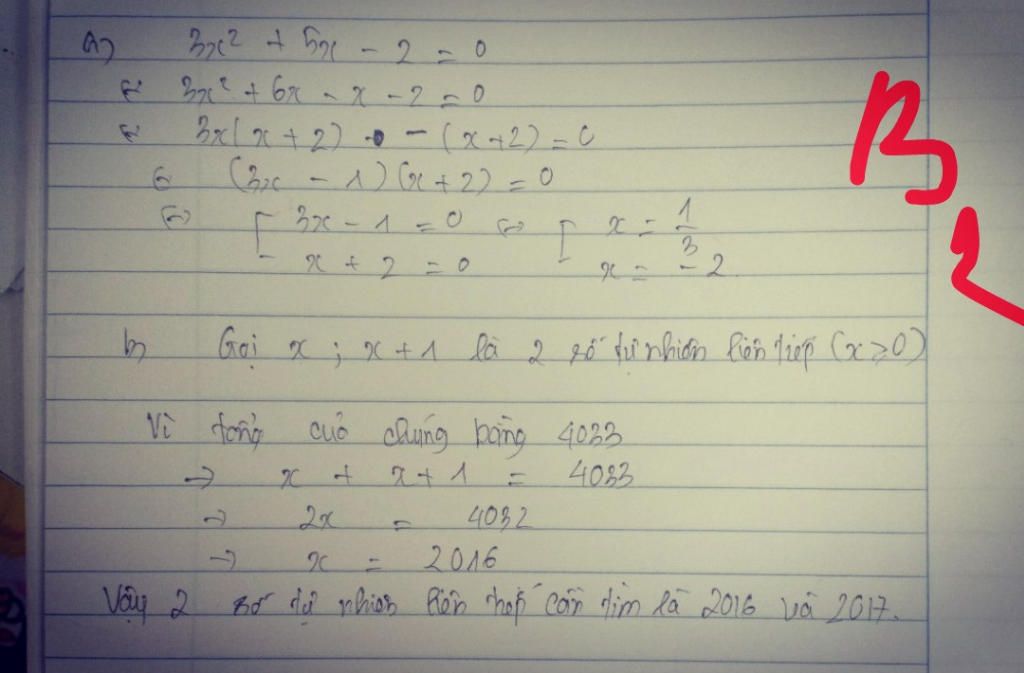 a) 3x² + 5x - 2 = 0
⇔ 3x² + 6x - x - 2 = 0
⇔ 3x(x + 2) - (x + 2) = 0
⇔ (3x - 1)(x + 2) = 0
⇔ [ 3x - 1 = 0 ⇔ [ x = 1/3
x + 2 = 0 x = -2.
b) Gọi x ; x + 1 là 2 số tự nhiên liên tiếp (x ≥ 0)
Vì tổng của chúng bằng 4033
→ x + x + 1 = 4033
→ 2x = 4032
→ x = 2016
Vậy 2 số tự nhiên liên tiếp cần tìm là 2016 và 2017.
B
1